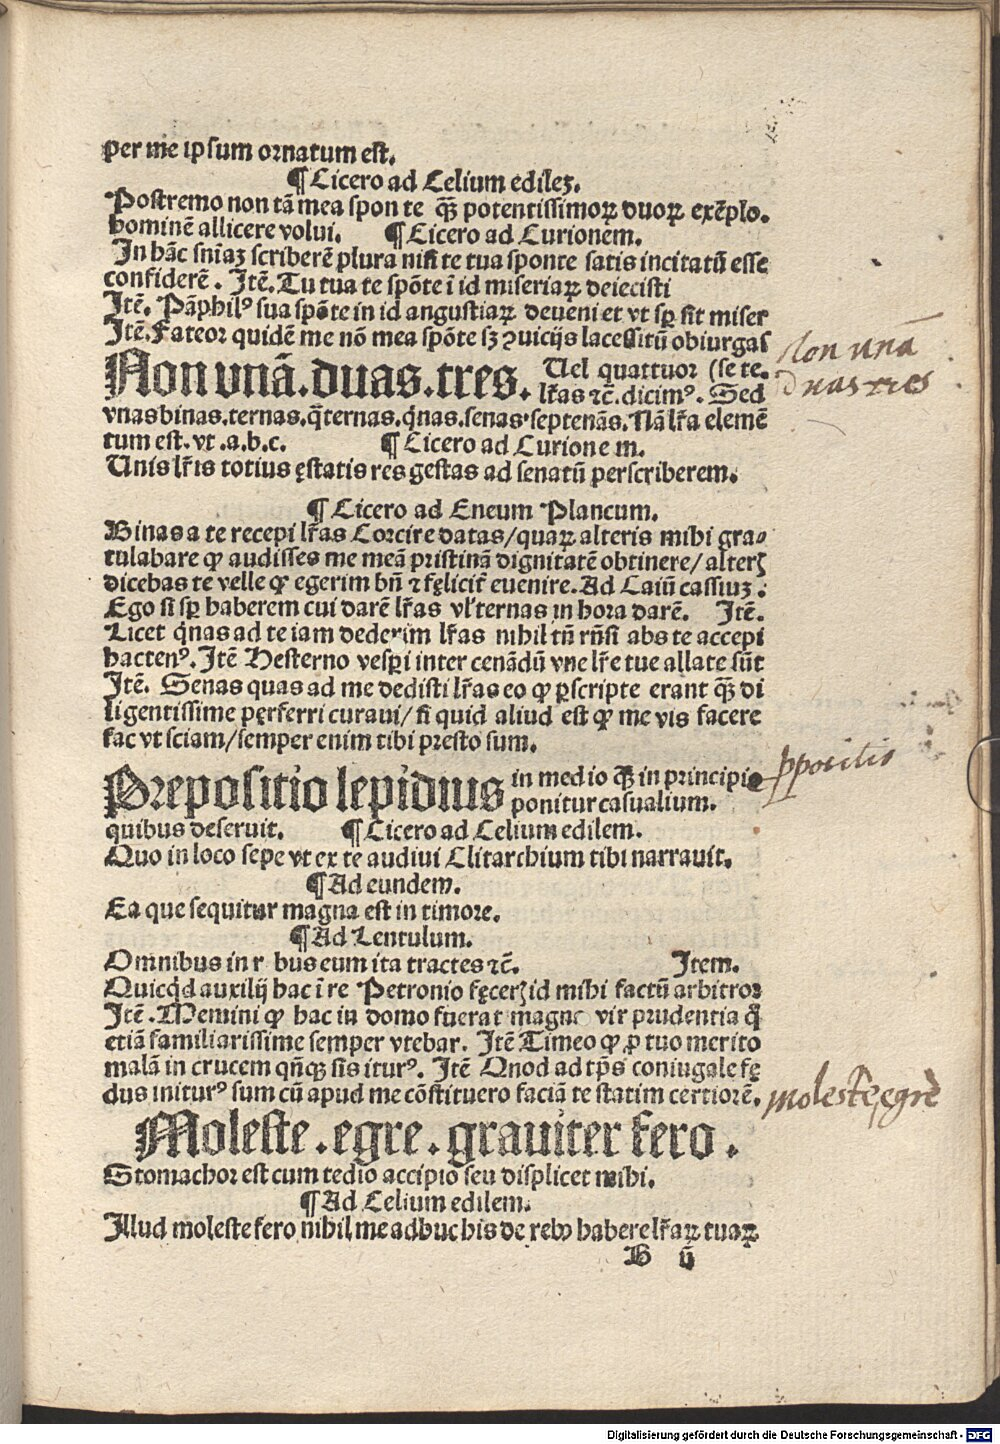 per me ipsum ornatum est.
¶ Cicero ad Celium edileʒ.
Postremo non tā mea spon te qȝ̄ potentissimoꝝ duoꝝ exēplo.
hominē allicere volui. ¶ Cicero ad Curionem.
In hāc sn̄iaʒ scriberē plura nisi te tua sponte satis incitatū esse
confiderē. Itē. Tu tua te spōte ī id miseriaꝝ deiecisti
Itē. Pāphilꝰ sua spōte in id angustiaꝝ deueni et vt sꝑ sit miser
Itē. Fateor quidē me nō mea spōte sʒ ꝯuicijs lacessitū obiurgas
Non vnā. duas. tres. Uel quattuor (se te.
lr̄as ⁊c̄. dicimꝰ. Sed
vnas binas. ternas. q̄ternas. q̇nas. senas. septenās. Nā lr̄a elemē
tum est. vt .a.b.c. ¶ Cicero ad Curione m.
Unis lr̄is totius ęstatis res gestas ad senatū perscriberem.
¶ Cicero ad Eneum Plancum.
Binas a te recepi lr̄as Corcire datas/quaꝝ alteris mihi gra⸗
tulabare ꝙ audisses me meā pristinā dignitatē obtinere/ alterꝭ
dicebas te velle ꝙ egerim bn̄ ⁊ fęlicit̄ euenire. Ad Caiū cassiuʒ.
Ego si sꝑ haberem cui darē lr̄as vl' ternas in hora darē. Itē.
Licet q̇nas ad te iam dederim lr̄as nihil tn̄ rn̄si abs te accepi
hactenꝰ. Itē Hesterno vesꝑi inter cenādū vne lr̄e tue allate sūt
Itē. Senas quas ad me dedisti lr̄as eo ꝙ ꝑscripte erant qȝ̄ di
ligentissime pęrferri curaui/ si quid aliud est ꝙ me vis facere
fac vt sciam/semper enim tibi presto sum.
Prepositio lepidius in medio qȝ̄ in principio
ponitur casualium.
quibus deseruit. ¶ Cicero ad Celium edilem.
Quo in loco sepe vt ex te audiui Clitarchium tibi narrauit.
¶ Ad eundem.
Ea que sequitur magna est in timore.
¶ Ad Lentulum.
Omnibus in r bus eum ita tractes ⁊c̄. Item.
Quicq̇d auxilij hac ī re Petronio fęcerꝭ id mihi factū arbitror
Itē. Memini ꝙ hac in domo fuerat magno vir prudentia q̄
etiā familiarissime semper vtebar. Itē Timeo ꝙ ꝓ tuo merito
malā in crucem qn̄qȝ sis iturꝰ. Itē Quod ad tp̄s coniugale fę
dus initurꝰ sum cū apud me cōstituero faciā te statim certiorē.
Moleste. egre. grauiter fero.
Stomachor est cum tedio accipio seu displicet mihi.
¶ Ad Celium edilem.
Illud moleste fero nihil me adhuc his de rebꝰ habere lr̄aꝝ tuaꝝ
B ij
Non unā
duas tres
p̄positio
moleste egre
Digitalisierung gefördert durch die Deutsche Forschungsgemeinschaft - DFG